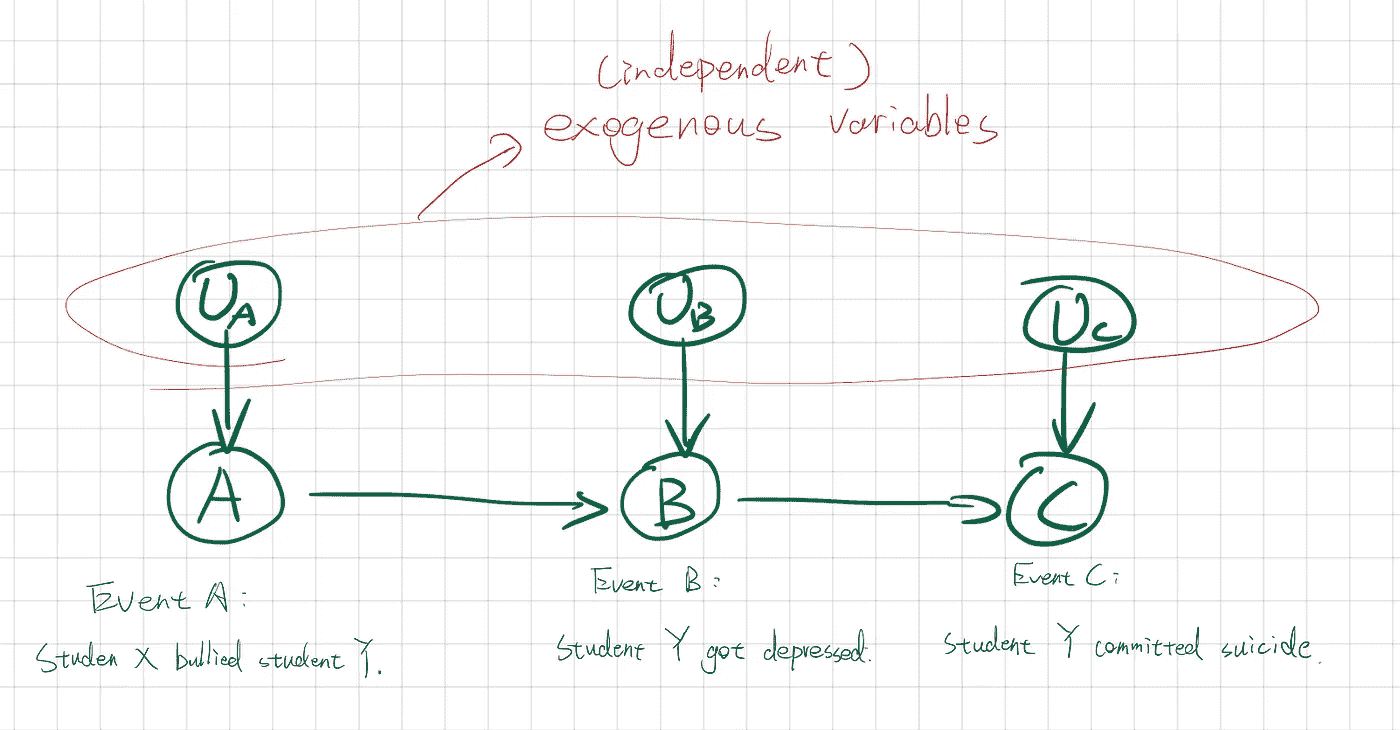 (independent)
exogenous variables
U_A
U_B
U_C
A
B
C
Event A:
Studen X bullied student Y.
Event B:
Student Y got depressed.
Event C:
Student Y committed suicide.